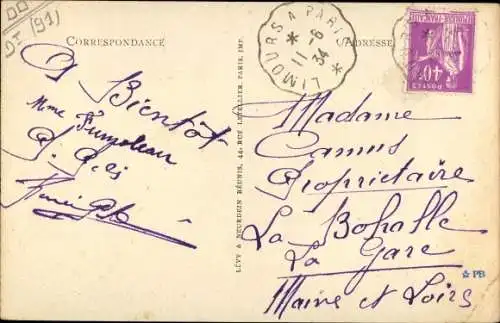 DI (91)
CORRESPONDANCE
ADRESSE
LIMOURS A PARIS
11-6
34
POSTES
40c
A Bientôt
Mme
LÉVY & NEURDEIN RÉUNIS, 44, RUE LETELLIER, PARIS, IMP.
Madame
Camus
Propriétaire
La Bohalle
La Gare
Maine et Loire
PB